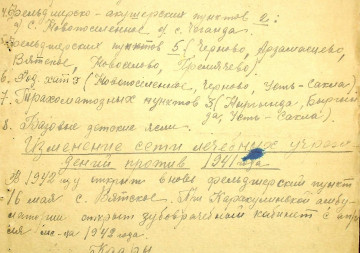 4. Фельдшерско-акушерских пунктов 2:
с. Новопоселенное и с. Боярка
Фельдшерских пунктов 5 (Черново, Ардашево,
Вятское, Новоселово, Кремлёво).
6. Род. хат 3 (Новопоселенное, Черново, Усть-Сакла).
7. Трахоматозных пунктов 3 (
Усть-Сакла).
8. Колхозные детские ясли —
Изменение сети лечебных учреж
дений против 1941 года
В 1942 году открыт вновь фельдшерский пункт
16 мая с. Вятское. При Каракулинской амбу
латории открыт зубоврачебный кабинет с апре
ля м-ца 1942 года.
Кадры